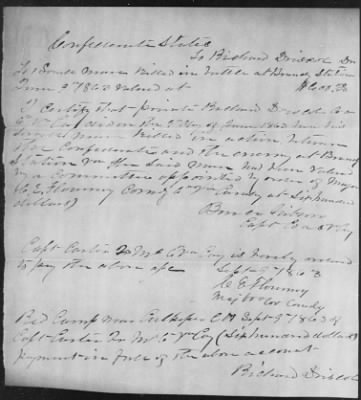 Confederate States
To Richard Driscoe Dr
To 1 Sorrel Mare Killed in battle at Brandy Station
June 9th 1863 Valued at $600.00
I certify that private Richard Driscoe Co
6th Va Cav did on the 9th day of June 1863 have his
sorrel mare killed in action between
the Confederate and the enemy at Brandy
Station Va the said mare had been valued
by a committee appointed by order of Major
C E Flournoy Comg 6th Va Cavalry at Six hundred
dollars
Capt Co 6 Va Cav
Capt 2 M 6 Va Cav is hereby ordered
to pay the above a/c
Sept 9th 1863
C E Flournoy
Maj 6 Va Cavly
Recd Camp near Culpeper CH Sept 9th 1863 of
Capt 2 M 6 Va Cav (Six hundred dollars)
payment in full of the above account
Richard Driscoe